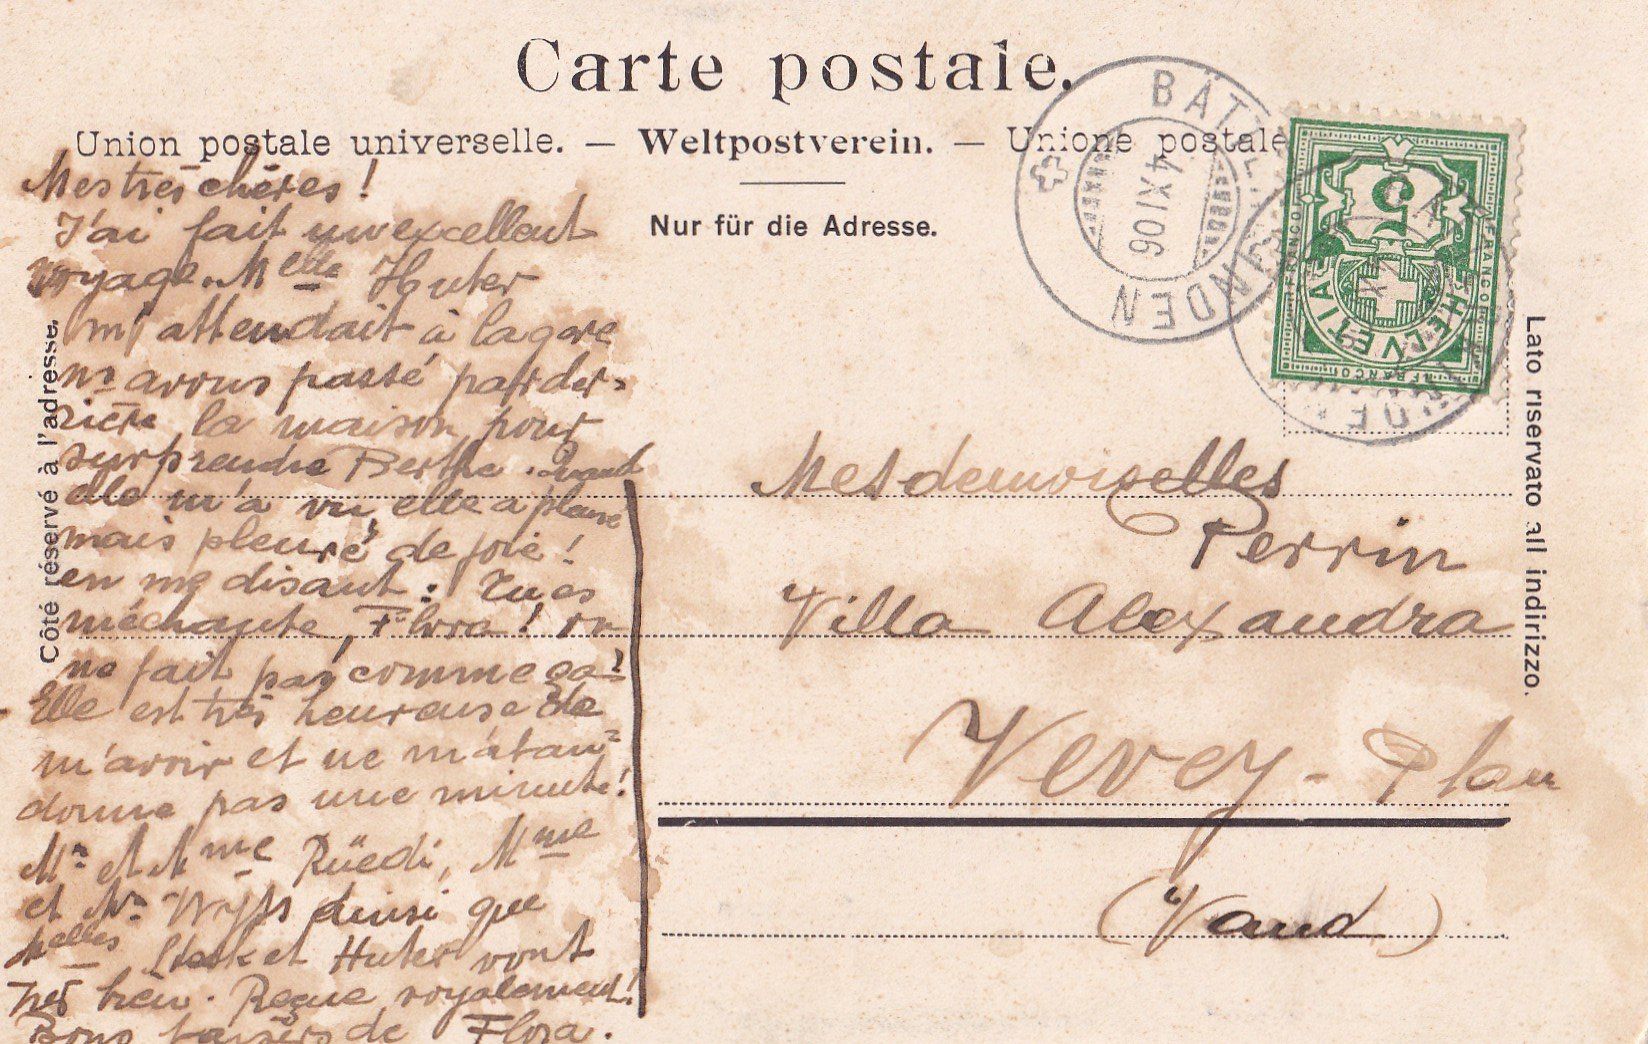 Carte postale.
Union postale universelle. — Weltpostverein. — Unione postale
Nur für die Adresse.
Côté réservé à l'adresse.
Lato riservato all indirizzo.
BÄTTERKINDEN
4 XI 06
5
FRANCO
HELVETIA
Mes très chères!
J'ai fait un excellent
voyage. Melle Huter
m'attendait à la gare
ns avons passé par der-
rière la maison pour
surprendre Berthe. Quand
elle m'a vu, elle a pleuré
mais pleuré de joie!
en me disant: Tu es
méchante, Flora! on
ne fait pas comme ça!
Elle est très heureuse de
m'avoir et ne m'aban-
donne pas une minute!
Mr et Mme Rüedi, Mme
et Mr Wyss ainsi que
Melles et Huter vont
très bien. Reçue royalement!
Bons baisers de Flora.
Mesdemoiselles
Perrin
Villa Alexandra
Vevey-Plan
(Vaud)